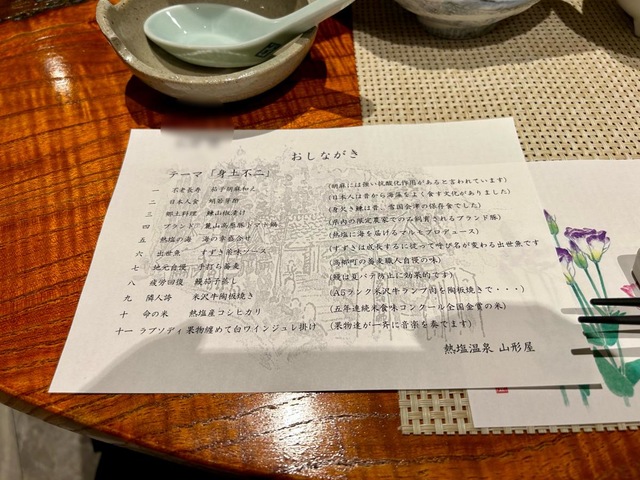 おしながき
テーマ「身土不二」
一 不老長寿 茄子胡麻和え (胡麻には強い抗酸化作用があると言われています)
二 日本人食 明若芽酢 (日本人は昔から海藻をよく食す文化がありました)
三 郷土料理 鰊山椒漬け (身欠き鰊は昔、雪国会津の保存食でした)
四 ブランド 麓山高原豚トマト鍋 (県内の限定農家でのみ飼育されるブランド豚)
五 熱塩の海 海の幸盛合せ (熱塩に海を届けるマルモプロデュース)
六 出世魚 すずき香味ソース (すずきは成長するに従って呼び名が変わる出世魚です
七 地元自慢 手打ち蕎麦 (高郷町の蕎麦職人自慢の味)
八 疲労回復 鰻茄子蒸し (鰻は夏バテ防止に効果的です)
九 隣人誇 米沢牛陶板焼き (A5ランク米沢牛ランプ肉を陶板焼きで・・・)
十 命の米 熱塩産コシヒカリ (五年連続米食味コンクール全国金賞の米)
十一 ラプソディ 果物纏めて白ワインジュレ掛け (果物達が一斉に音楽を奏でます)
熱塩温泉 山形屋